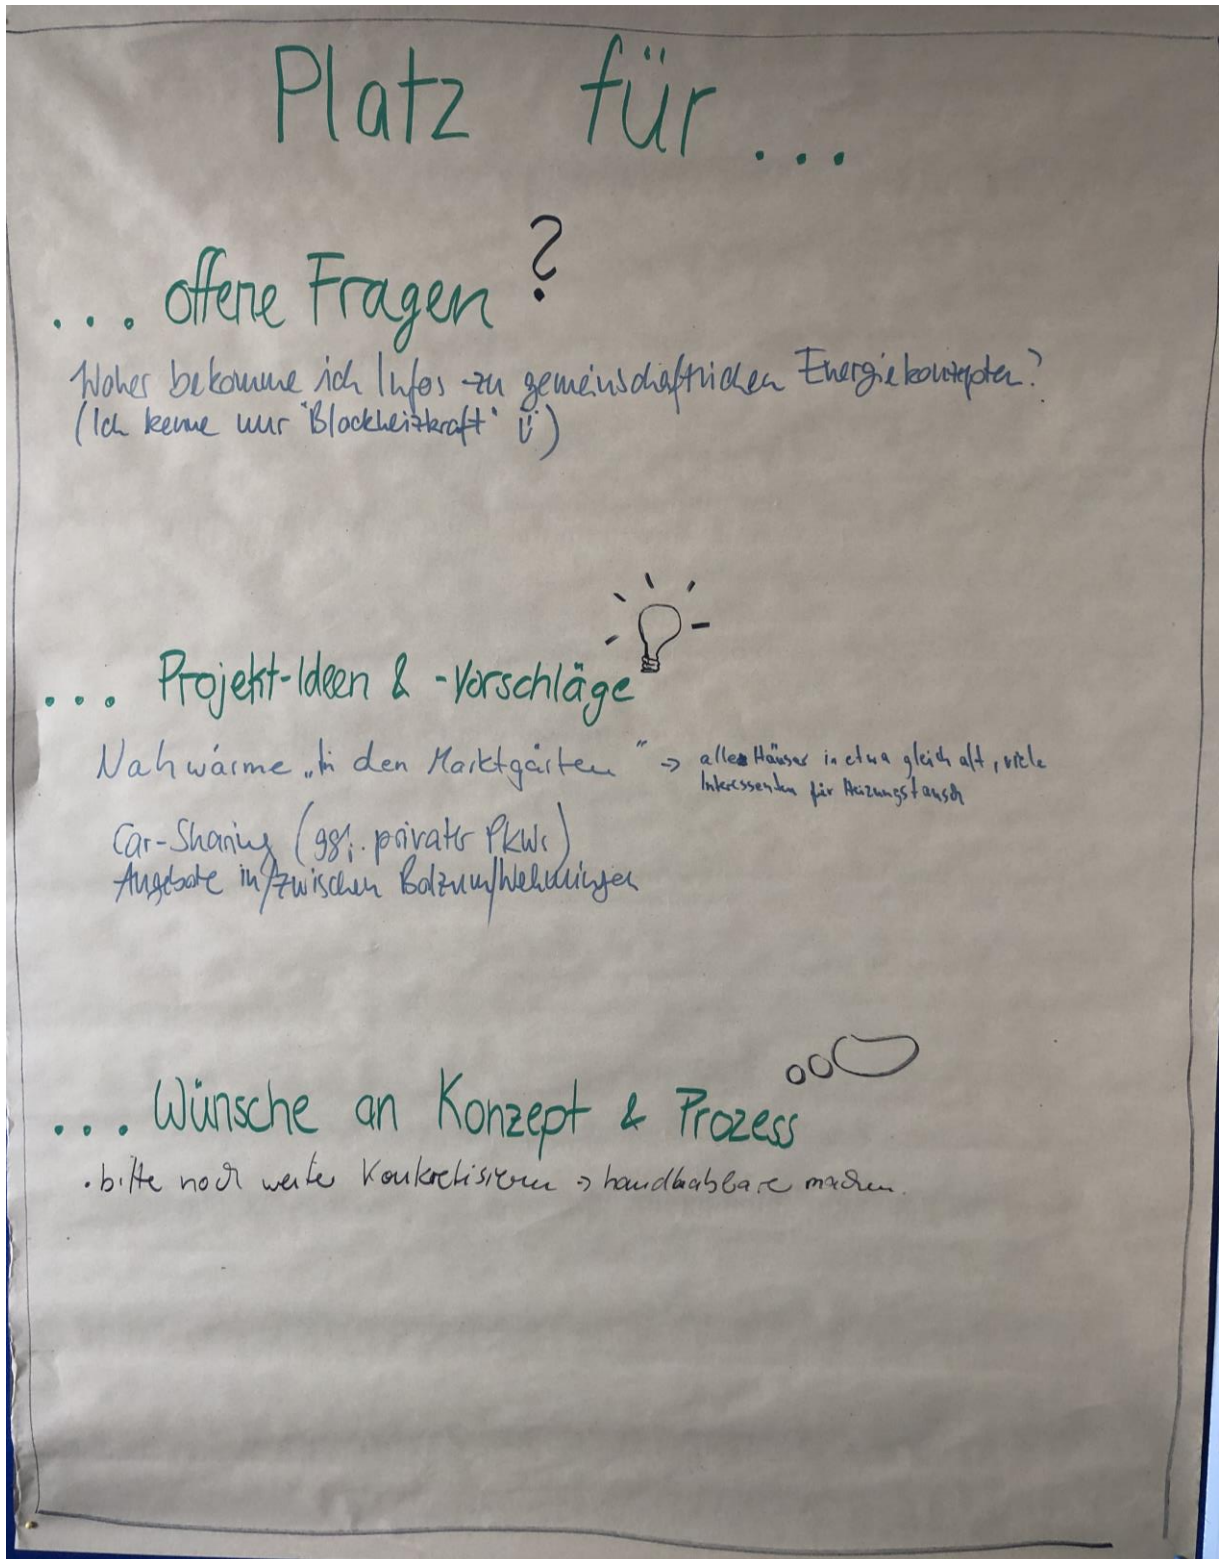 Platz für...
... offene Fragen ?
Woher bekomme ich Infos zu gemeinschaftlichen Energiekonzepten?
(Ich kenne nur "Blockheizkraft" ü)
... Projekt-Ideen & -Vorschläge
Nahwärme „In den Marktgärten" → alle Häuser in etwa gleich alt, viele
Interessenten für Heizungstausch
Car-Sharing (ggf. privater PKWs)
Angebote in/zwischen Bolzum/Wehmingen
... Wünsche an Konzept & Prozess
• bitte noch weiter Konkretisieren → handhabbare machen.